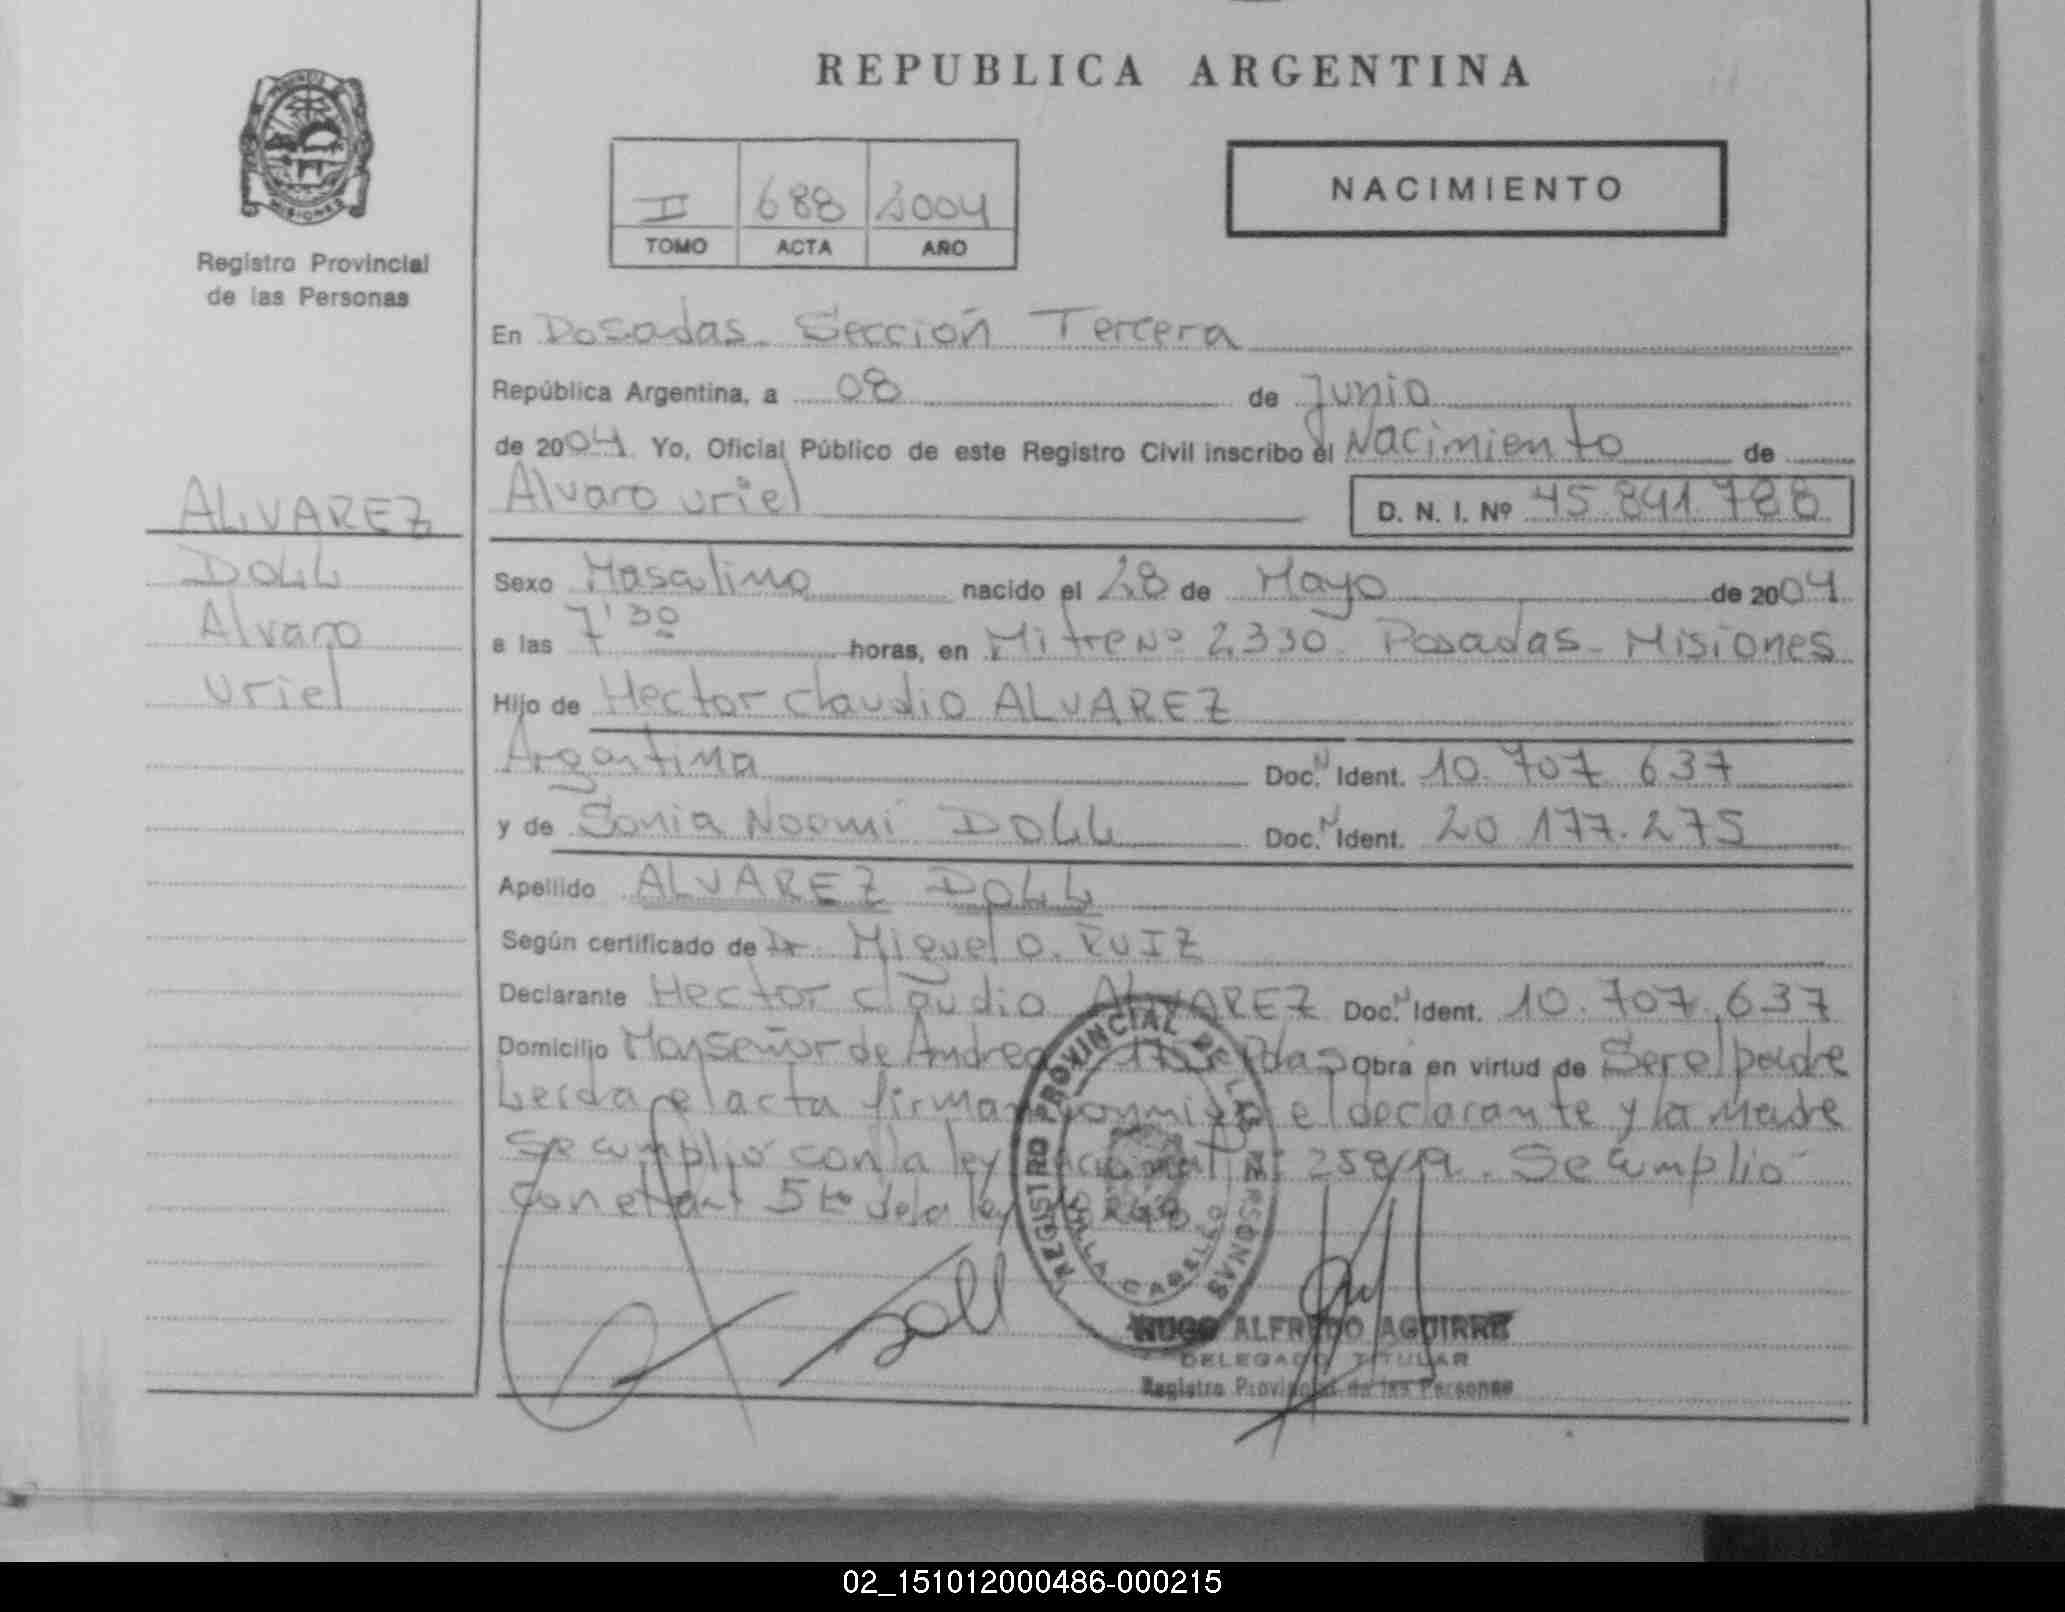 REPUBLICA ARGENTINA
MISIONES
Registro Provincial
de las Personas
II 688 2004
TOMO ACTA AÑO
NACIMIENTO
En Posadas Sección Tercera
República Argentina, a 08 de Junio
de 2004 Yo, Oficial Público de este Registro Civil inscribo el Nacimiento de
Alvaro Uriel D. N. I. Nº 45.841.788
ALVAREZ
DOLL
Alvaro
Uriel
Sexo Masculino nacido el 28 de Mayo de 2004
a las 7'30 horas, en Mitre Nº 2330 Posadas - Misiones
Hijo de Hector Claudio ALVAREZ
Argentina Doc. N Ident. 10.707.637
y de Sonia Noemi DOLL Doc. N Ident. 20.177.275
Apellido ALVAREZ DOLL
Según certificado de Dr. Miguel O. RUIZ
Declarante Hector Claudio ALVAREZ Doc. N Ident. 10.707.637
Domicilio Monseñor de Andrea Pdas Obra en virtud de Ser el padre
Leida el acta firman conmigo el declarante y la madre
Se cumplió con la ley Se cumplió
con el 5to de la ley
REGISTRO PROVINCIAL DE LAS PERSONAS
VILLA CABELLO
Doll
HUGO ALFREDO AGUIRRE
DELEGADO TITULAR
Registro Provincial de las Personas
02_151012000486-000215